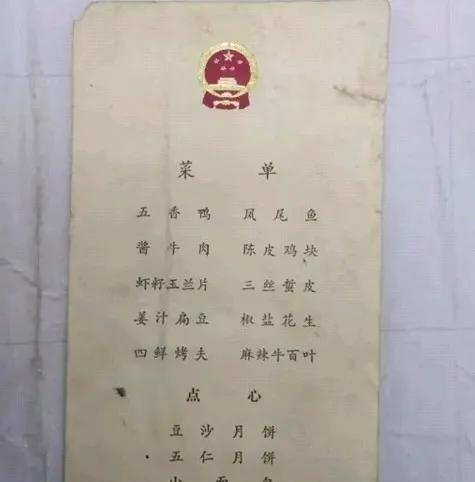 菜单
五香鸭 凤尾鱼
酱牛肉 陈皮鸡块
虾籽玉兰片 三丝蜇皮
姜汁扁豆 椒盐花生
四鲜烤夫 麻辣牛百叶
点心
豆沙月饼
五仁月饼